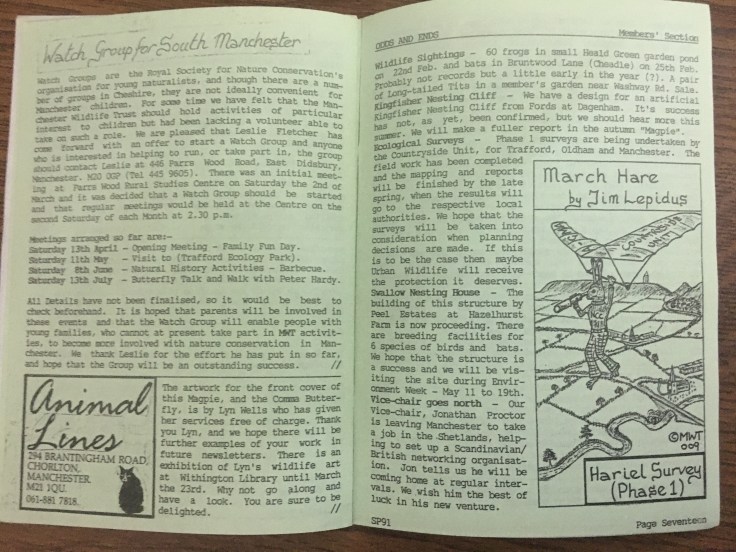 Watch Group for South Manchester
Watch Groups are the Royal Society for Nature Conservation's
organisation for young naturalists, and though there are a num-
ber of groups in Cheshire, they are not ideally convenient for
Manchester children. For some time we have felt that the Man-
chester Wildlife Trust should hold activities of particular
interest to children but had been lacking a volunteer able to
take on such a role. We are pleased that Leslie Fletcher has
come forward with an offer to start a Watch Group and anyone
who is interested in helping to run, or take part in, the group
should contact Leslie at 446 Parrs Wood Road, East Didsbury,
Manchester. M20 0GP (Tel 445 9605). There was an initial meet-
ing at Parrs Wood Rural Studies Centre on Saturday the 2nd of
March and it was decided that a Watch Group should be started
and that regular meetings would be held at the Centre on the
second Saturday of each Month at 2.30 p.m.
Meetings arranged so far are:-
Saturday 13th April - Opening Meeting - Family Fun Day.
Saturday 11th May - Visit to (Trafford Ecology Park).
Saturday 8th June - Natural History Activities - Barbecue.
Saturday 13th July - Butterfly Talk and Walk with Peter Hardy.
All Details have not been finalised, so it would be best to
check beforehand. It is hoped that parents will be involved in
these events and that the Watch Group will enable people with
young families, who cannot at present take part in MWT activit-
ies, to become more involved with nature conservation in Man-
chester. We thank Leslie for the effort he has put in so far,
and hope that the Group will be an outstanding success. //
Animal
Lines
294 BRANTINGHAM ROAD,
CHORLTON,
MANCHESTER.
M21 1QU.
061-881 7818.
The artwork for the front cover of
this Magpie, and the Comma Butter-
fly, is by Lyn Wells who has given
her services free of charge. Thank
you Lyn, and we hope there will be
further examples of your work in
future newsletters. There is an
exhibition of Lyn's wildlife art
at Withington Library until March
the 23rd. Why not go along and
have a look. You are sure to be
delighted. //
ODDS AND ENDS Members' Section
Wildlife Sightings - 60 frogs in small Heald Green garden pond
on 22nd Feb. and bats in Bruntwood Lane (Cheadle) on 25th Feb.
Probably not records but a little early in the year (?). A pair
of Long-tailed Tits in a member's garden near Washway Rd. Sale.
Kingfisher Nesting Cliff - We have a design for an artificial
Kingfisher Nesting Cliff from Fords at Dagenham. It's success
has not, as yet, been confirmed, but we should hear more this
summer. We will make a fuller report in the autumn "Magpie".
Ecological Surveys - Phase 1 surveys are being undertaken by
the Countryside Unit, for Trafford, Oldham and Manchester. The
field work has been completed
and the mapping and reports
will be finished by the late
spring, when the results will
go to the respective local
authorities. We hope that the
surveys will be taken into
consideration when planning
decisions are made. If this
is to be the case then maybe
Urban Wildlife will receive
the protection it deserves.
Swallow Nesting House - The
building of this structure by
Peel Estates at Hazelhurst
Farm is now proceeding. There
are breeding facilities for
6 species of birds and bats.
We hope that the structure is
a success and we will be vis-
iting the site during Envir-
onment Week - May 11 to 19th.
Vice-chair goes north - Our
Vice-chair, Jonathan Proctor
is leaving Manchester to take
a job in the Shetlands, help-
ing to set up a Scandinavian/
British networking organisat-
ion. Jon tells us he will be
coming home at regular inter-
vals. We wish him the best of
luck in his new venture.
March Hare
by Jim Lepidus
COUNTRYSIDE
UNIT
©MWT
009
Hariel Survey
(Phase 1)
SP91 Page Seventeen